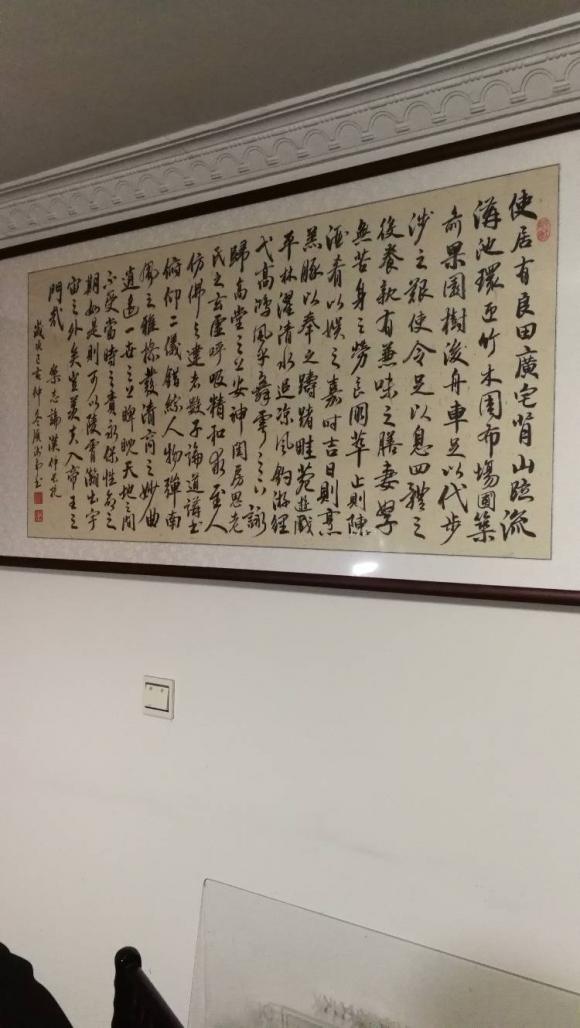 使居有良田廣宅背山臨流
溝池環匝竹木周布場圃築
前果園樹後舟車足以代步
涉之艱使令足以息四體之
役養親有兼味之膳妻孥
無苦身之勞良朋萃止則陳
酒肴以娛之嘉時吉日則烹
羔豚以奉之躊躇畦苑遊戲
平林濯清水追涼風釣游鯉
弋高鴻風乎舞雩之下詠
歸高堂之上安神閨房思老
氏之玄虛呼吸精和求至人
仿佛與達者數子論道講書
俯仰二儀錯綜人物彈南
風之雅操發清商之妙曲
逍遙一世之上睥睨天地之間
不受當時之責永保性命之
期如是則可以陵霄漢出宇
宙之外矣豈羨夫入帝王之
門哉 樂志論漢仲長統
歲次己亥仲冬書